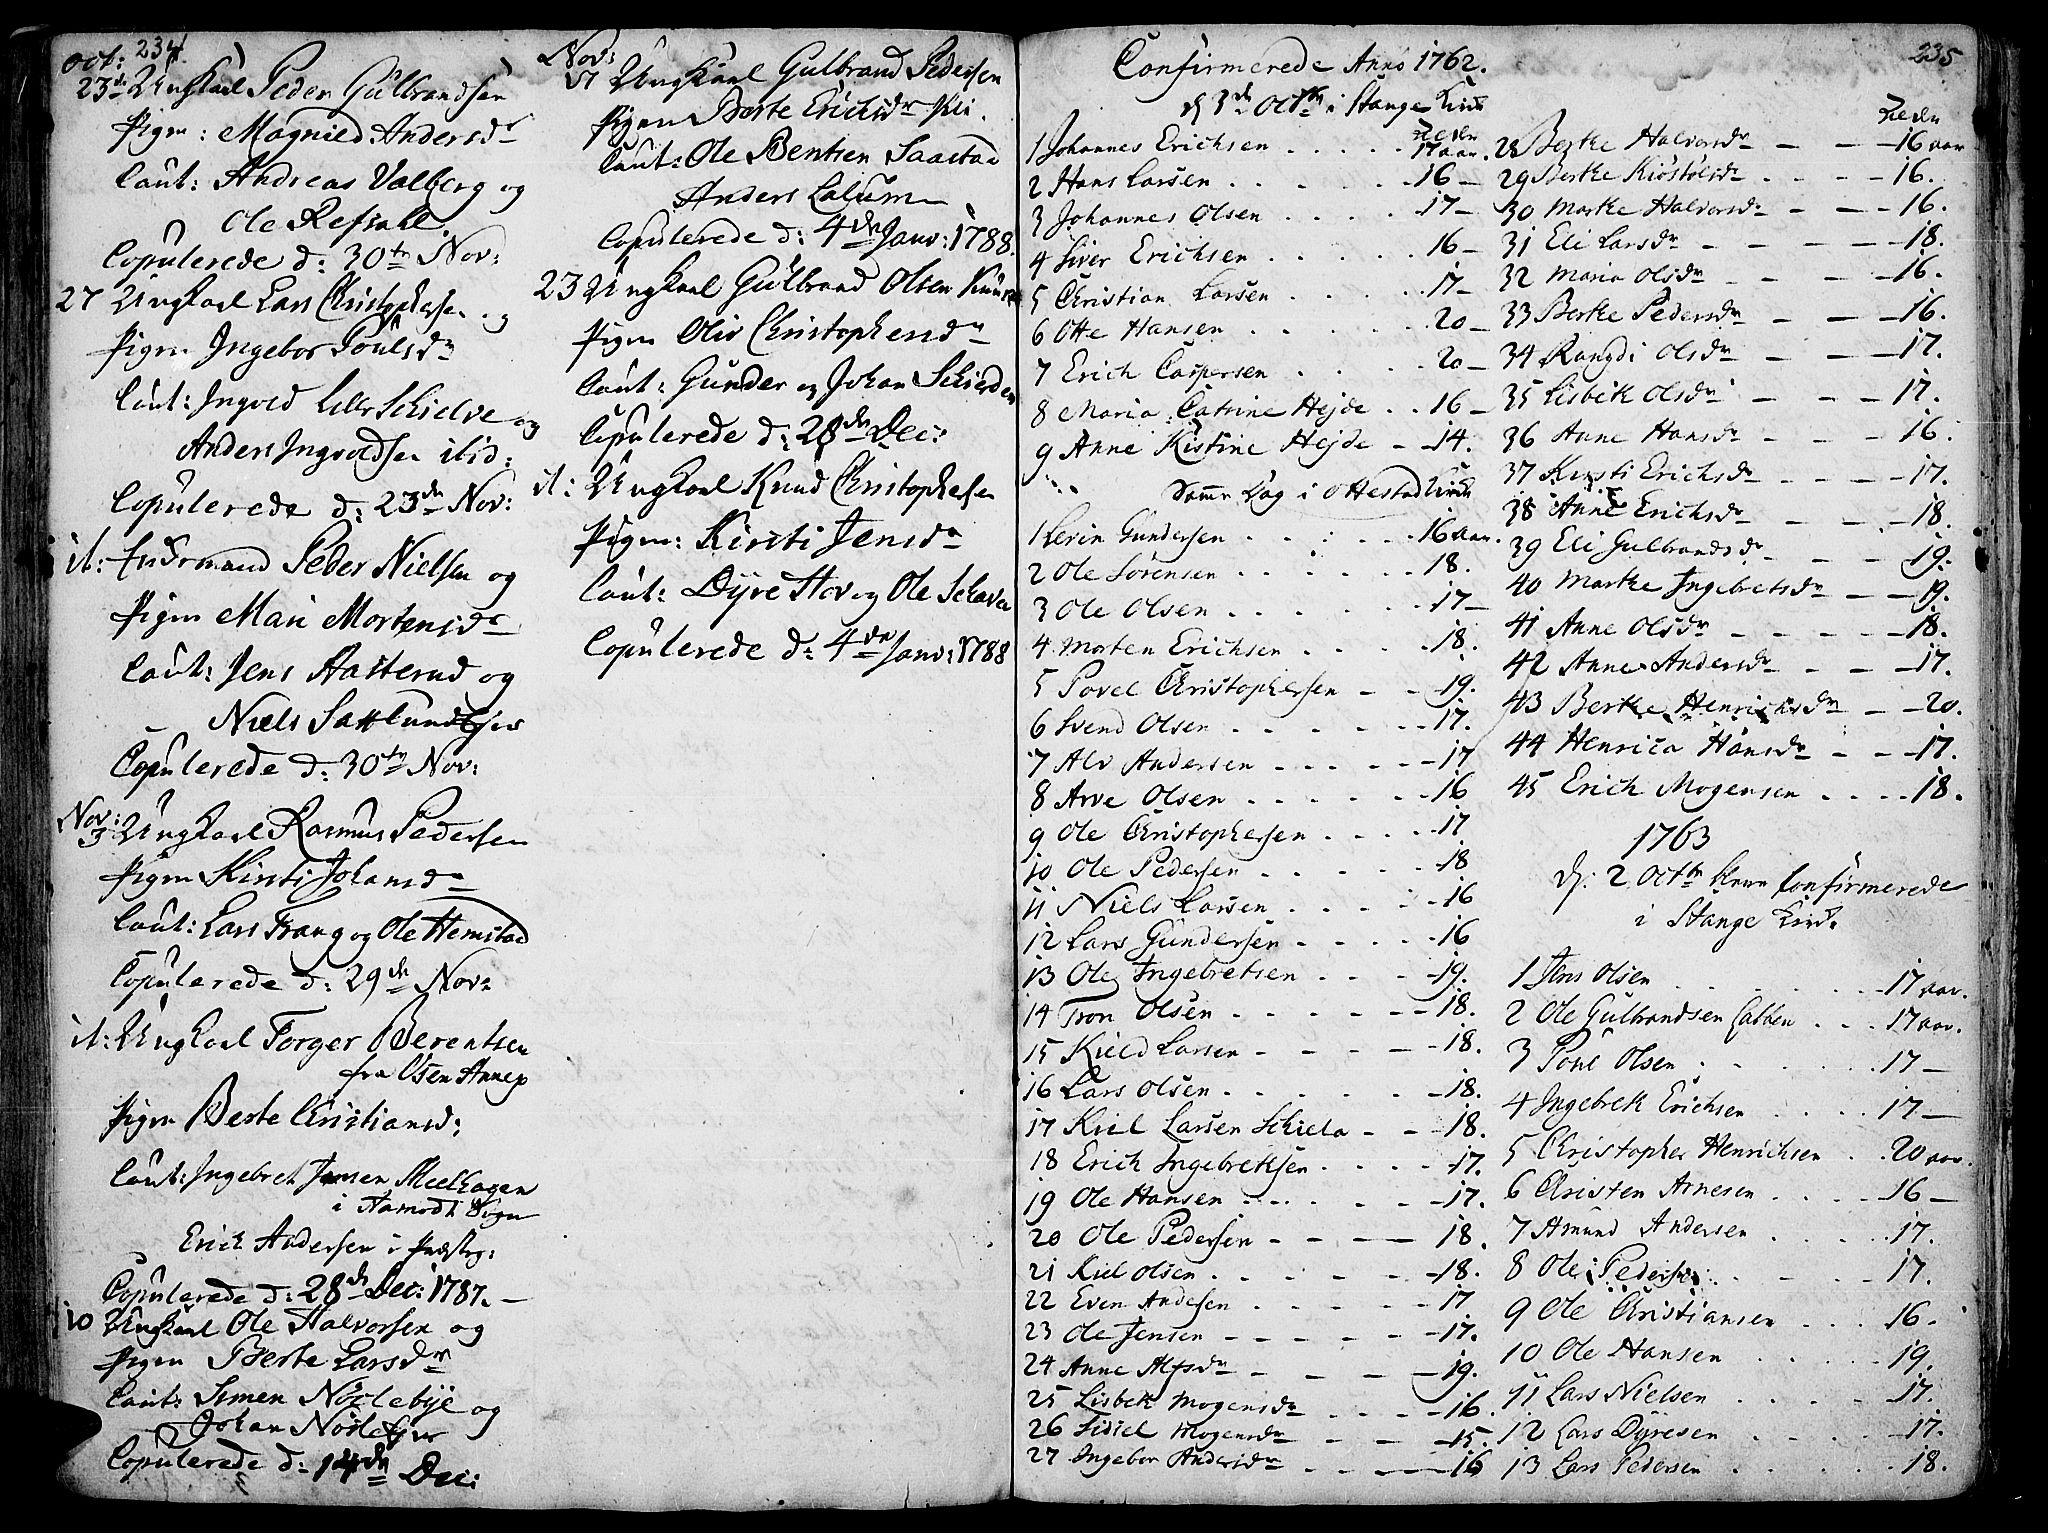 234.
Oct:
23de Ungkarl Peder Gulbrandsen
Pigen: Magnild Andersdr
Caut: Andreas Valberg og
Ole Refsahl.
Copulerede d: 30te Nov:
27 Ungkarl Lars Christophersen og
Pigen Ingebor Poulsdr
Caut: Ingvold Lille Schielve og
Anders Ingvoldsen ibid:
Copulerede d: 23de Nov:
it: Enkemand Peder Nielsen og
Pigen Mari Mortensdr
Caut: Jens Aasterud og
Niels
Copulerede d: 30te Nov:
Nov:
3 Ungkarl Rasmus Pedersen
Pigen Kirsti Johansdr
Caut: Lars Frang og Ole Hemstad
Copulerede d: 29de Nov:
it: Ungkarl Torger Berentsen
fra Osen Annex
Pigen Berte Christiansd:
Caut: Ingebret Jensen
i Aamodt Sogn
Erich Andersen i
Copulerede d: 28de Dec: 1787.
10 Ungkarl Ole Halvorsen og
Pigen Berte Larsdr
Caut: Simen Nöslebye og
Johan Nöslebye
Copulerede d: 14de Dec:
Nov:
Ungkarl Gulbrand Pedersen
Pigen Berte Erichsdr
Caut: Ole Bentsen Saastad
Anders Lalum
Copulerede d: 4de Janv: 1788.
23 Ungkarl Gulbrand Olsen
Pigen Oliv Christophersdr
Caut: Gunder og Johan Schierden
Copulerede d: 28de Dec:
it: Ungkarl Knud Christophersen
Pigen: Kirsti Jensdr
Caut: Dyre Hov og Ole
Copulerede d: 4de Janv: 1788
235
Confirmerede Anno 1762.
d 3de Octbr i Stange Kirke
1 Johannes Erichsen . . . . 17 aar.
2 Hans Larsen . . . . 16 –
3 Johannes Olsen . . . . 17 –
4 Siver Erichsen . . . . 16 –
5 Christian Larsen . . . . 17 –
6 Otte Hansen . . . . 20 –
7 Erich Caspersen . . . . 20 –
8 Maria Catrine Hejde . . 16 –
9 Anne Kistine Hejde – 14.
Samme Dag i Ottestad Kirke
1 Levin Gundersen . . . . 16 aar.
2 Ole Sörensen . . . . 18.
3 Ole Olsen . . . . 17 –
4 Morten Erichsen . . . . 18.
5 Povel Christophersen – – 19.
6 Svend Olsen . . . . 17.
7 Alv Andersen – – – – 17
8 Arve Olsen . . . . 16
9 Ole Christophersen . . . . 17
10 Ole Pedersen . . . . 18
11 Niels Larsen . . . . 16
12 Lars Gundersen – – – – 16
13 Ole Ingebretsen . . . . 19.
14 Tron Olsen – – – – 18.
15 Kield Larsen – – – – 18.
16 Lars Olsen . . . . 18.
17 Kiel Larsen Schiela – – 18.
18 Erich Ingebretsen . . . . 17.
19 Ole Hansen . . . . 17.
20 Ole Pedersen – – – – 18.
21 Kiel Olsen . . . . 18.
22 Even Andesen . . . . 17
23 Ole Jensen – – – – 17.
24 Anne Alfsdr – – – – 19.
25 Lisbeth Mogensdr . . . . 16.
26 Sidsel Mogensdr – – – 15.
27 Ingebor Andersdr – – – 16
28 Berthe Halvorsdr – – – 16 aar
29 Berthe Kiöstolsdr . . . . 16.
30 Marthe Halvorsdr – – – 16.
31 Eli Larsdr – – – – 18.
32 Maria Olsdr – – – – 16.
33 Berthe Pedersdr – – – 16.
34 Rangdi Olsdr – – – 17.
35 Lisbeth Olsdr – – – 17.
36 Anne Hansdr – – – 16.
37 Kirsti Erichsdr – – – – 17.
38 Anne Erichsdr – – – 18.
39 Eli Gulbrandsdr – – – – 19.
40 Marthe Ingebretsdr – – 19.
41 Anne Olsdr – – – – 18.
42 Anne Andersdr – – – 17.
43 Berthe Henrichsdr – – 20.
44 Henrica Hansdr – – – 17.
45 Erich Mogensen . . . . 18.
1763
d. 2 Octbr Confirmerede
i Stange Kirke
1 Jens Olsen . . . . 17 aar.
2 Ole Gulbrandsen . . . 17 aar.
3 Povel Olsen . . . . 17 –
4 Ingebret Erichsen . . . . 17 –
5 Christopher Henrichsen . . 20 aar.
6 Christen Arnesen . . . . 16 –
7 Amund Andersen . . . . 17.
8 Ole Pedersen . . . . 17.
9 Ole Christiansen . . . 16 –
10 Ole Hansen . . . . 19.
11 Lars Nielsen . . . . 17.
12 Lars Dyresen . . . . 17.
13 Lars Pedersen . . . . 18.